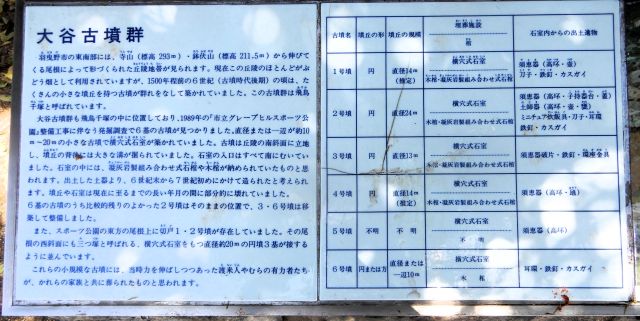 大谷古墳群
羽曳野市の東南部には、寺山（標高293m）・鉢伏山（標高211.5m）から伸びて
くる尾根によって形づくられた丘陵地帯が見られます。現在この丘陵のほとんどがぶ
どう畑として利用されていますが、1500年程前の6世紀（古墳時代後期）の頃は、た
くさんの小さな墳丘を持つ古墳が群れをなして築かれていました。この古墳群は飛鳥
千塚と呼ばれています。
大谷古墳群も飛鳥千塚の中に位置しており、1989年の「市立グレープヒルスポーツ公
園」整備工事に伴なう発掘調査で6基の古墳が見つかりました。直径または一辺が約10
m〜20mの小さな古墳で横穴式石室が築かれていました。古墳は丘陵の南斜面に立地
し、墳丘の背後には大きな溝が掘られていました。石室の入口はすべて南にむいてい
ました。石室の中には、凝灰岩製組合わせ式石棺や木棺が納められていたものと思
われます。出土した土器より、6世紀末から7世紀初めにかけて造られたと考えられ
ます。墳丘や石室は現在に至るまでの長い年月の間に部分的に壊れていました。
6基の古墳のうち比較的残りのよかった2号墳はそのままの位置で、3・6号墳は移
築して整備しました。
また、スポーツ公園の東方の尾根上に切戸1・2号墳が存在していました。その尾
根の西斜面にも三つ塚と呼ばれる、横穴式石室をもつ直径約20mの円墳3基が接する
ように並んでいます。
これらの小規模な古墳には、当時力を伸ばしつつあった渡来人やむらの有力者たち
が、かれらの家族と共に葬られたものと思われます。
古墳名 墳丘の形 墳丘の規模 埋葬施設 石室内からの出土遺物
棺
1号墳 円 直径14m（推定） 横穴式石室 須恵器（高坏・壷）
木棺・凝灰岩製組み合わせ式石棺 刀子・鉄釘・カスガイ
2号墳 円 直径24m 横穴式石室 須恵器（高坏・子持器台・壷）
土師器（高坏・壷・
木棺・凝灰岩製組み合わせ式石棺 ミニチュア炊飯具・刀子・耳環
鉄釘・カスガイ
3号墳 円 直径13m 横穴式石室 須恵器破片・鉄釘・環座金具
木棺・凝灰岩製組み合わせ式石棺
4号墳 円 直径14m（推定） 横穴式石室 須恵器（高坏・
木棺・凝灰岩製組み合わせ式石棺
5号墳 不明 不明 横穴式石室 須恵器（高坏）
不明
6号墳 円または方 直径または一辺10m 横穴式石室 耳環・鉄釘・カスガイ
木棺